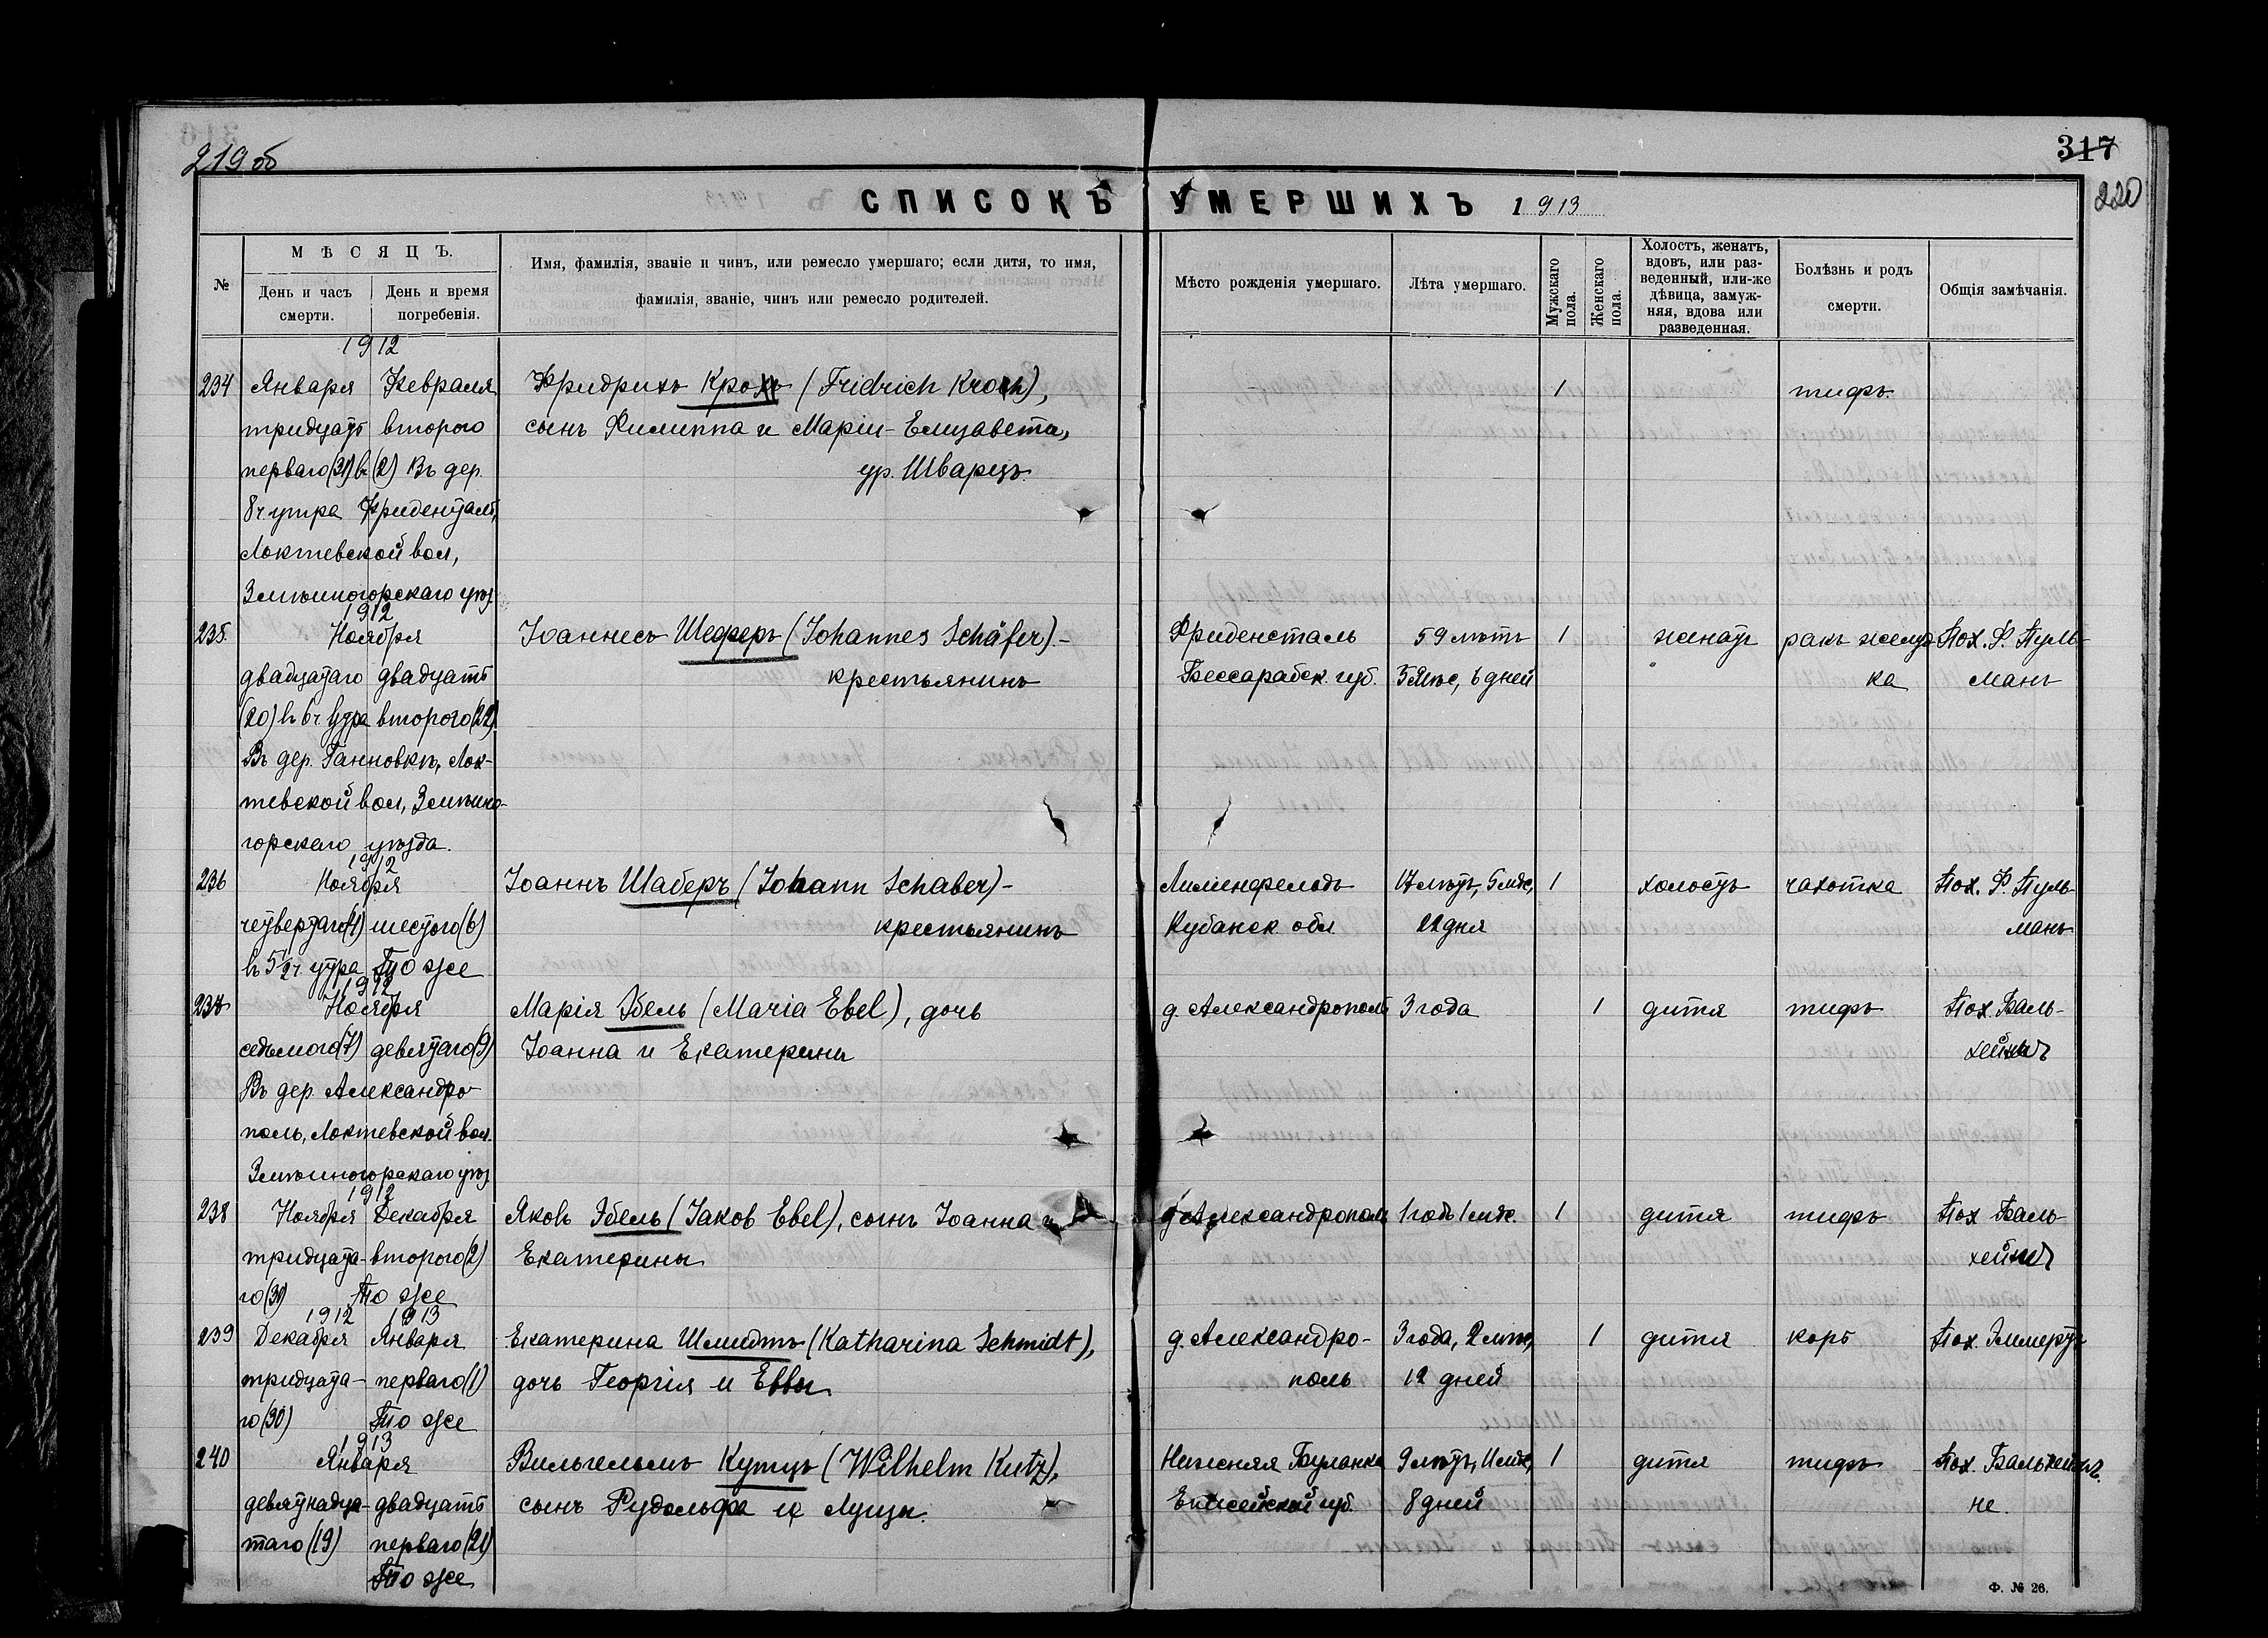 219 об
317
220
СПИСОКЪ УМЕРШИХЪ 1913
№
МѢСЯЦЪ.
День и часъ смерти.
День и время погребенія.
Имя, фамилія, званіе и чинъ, или ремесло умершаго; если дитя, то имя,
фамилія, званіе, чинъ или ремесло родителей.
Мѣсто рожденія умершаго.
Лѣта умершаго.
Мужскаго пола.
Женскаго пола.
Холостъ, женатъ,
вдовъ, или раз-
веденный, или-же
дѣвица, замуж-
няя, вдова или
разведенная.
Болѣзнь и родъ
смерти.
Общія замѣчанія.
1912
234 Января Февраля Фридрихъ Крохъ (Fridrich Kroch), 1 тифъ.
тридцать второго сынъ Филиппа и Маріи-Елизавета,
перваго (31) в. (2) Въ дер. ур. Шварцъ.
8 ч. утра Фриденталь,
Локтевской вол,
Змѣиногорскаго уѣз.
1912
235. Ноября Іоаннесъ Шеферъ (Johannes Schäfer).- Фриденсталь 59 лѣтъ 1 женатъ ракъ желуд- Пох. Ф. Пуль-
двадцатаго двадцать крестьянинъ Бессарабск. губ. 5 мѣс, 6 дней ка манъ
(20) в 6 ч. утра второго (22).
Въ дер. Ганновкѣ, Лок-
тевской вол, Змѣино-
горскаго уѣзда.
1912
236 Ноября Іоаннъ Шаберъ (Johann Schaber)- Лилиенфельдъ 17 лѣтъ, 5 мѣс, 1 холостъ чахотка Пох. Ф. Пуль-
четвертаго (4) шестого (6) крестьянинъ Кубанск. обл. 22 дня манъ
въ 5½ ч. утра То же
1912
237 Ноября Марія Эбель (Maria Ebel), дочь д. Александрополь 3 года 1 дитя тифъ Пох. Валь-
седьмого (7) девятаго (9) Іоанна и Екатерины хейнъ
Въ дер. Александро-
поль, Локтевской вол.
Змѣиногорскаго уѣз.
1912
238 Ноября Декабря Яковъ Эбель (Jakob Ebel), сынъ Іоанна и д. Александрополь 1 годъ 1 мѣс. 1 дитя тифъ Пох. Валь-
тридцата- второго (2) Екатерины хейнъ
го (30) То же
1912 1913
239 Декабря Января Екатерина Шмидтъ (Katharina Schmidt), д. Александро- 3 года, 2 мѣс, 1 дитя корь Пох. Эммертъ
тридцата- перваго (1) дочь Георгія и Еввы поль 12 дней
го (30) То же
1913
240 Января Вильгельмъ Кутцъ (Wilhelm Kutz), Нижняя Буланка 9 лѣтъ, 11 мѣс, 1 дитя тифъ Пох. Вальхейм
девятнадца- двадцать сынъ Рудольфа и Луизы. Енисейской губ. 8 дней не.
таго (19) перваго (21)
То же
Ф. № 26.